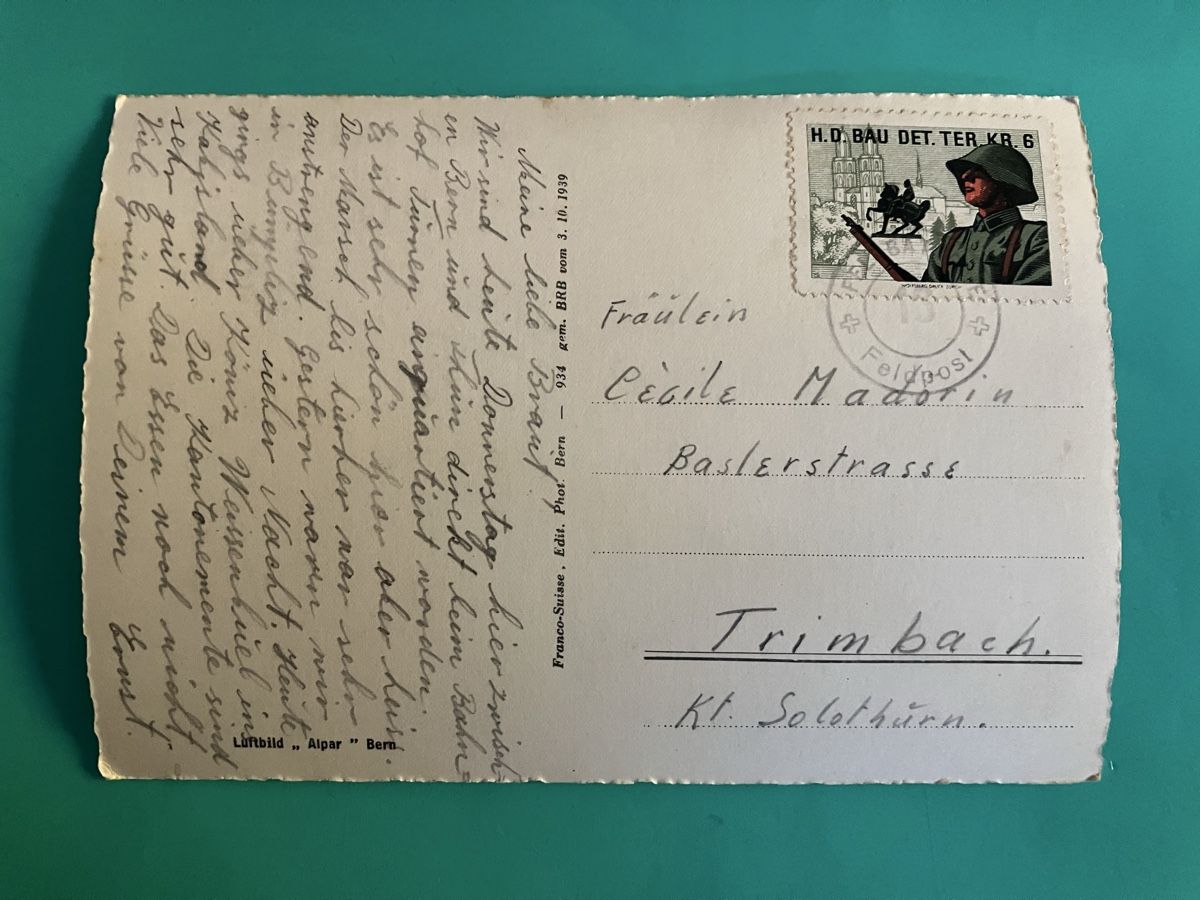 Meine liebe Braut,
Wir sind heute Donnerstag hier zwisch-
en Bern und Thun direkt beim Bahn-
hof Türnen einquartiert worden.
Es ist sehr schön hier aber heiss.
Der Marsch bis hierher war sehr
anstrengend. Gestern waren wir
in Bümpliz ueber Nacht. Heute
gings ueber Köniz
sehr gut. Das Essen noch nicht.
Die Kantonemente sind
Viele Grüsse von Deinem Ernst.
Luftbild „ Alpar " Bern
Franco-Suisse, Edit. Phot. Bern — 934 gem. BRB vom 3. 10. 1939
H.D. BAU DET. TER. KR. 6
WOLFSBERG DRUCK ZÜRICH
Feldpost
Fräulein
Cécile Madörin
Baslerstrasse
Trimbach.
Kt. Solothürn.